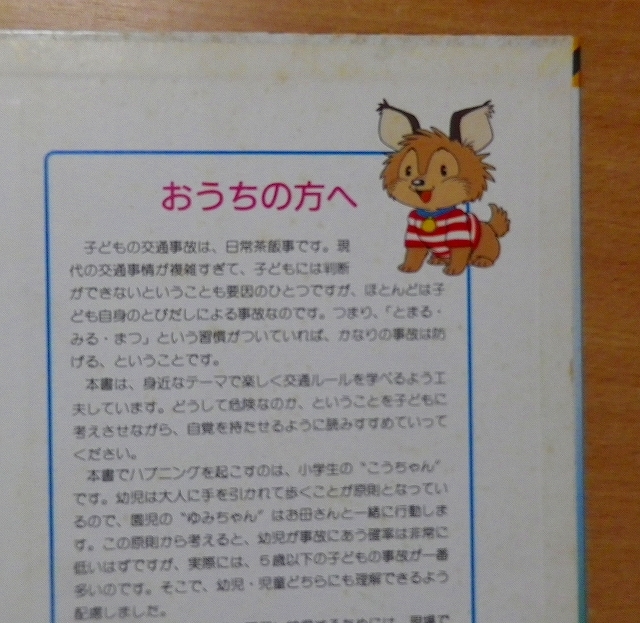 おうちの方へ
子どもの交通事故は、日常茶飯事です。現
代の交通事情が複雑すぎて、子どもには判断
ができないということも要因のひとつですが、ほとんどは子
ども自身のとびだしによる事故なのです。つまり、「とまる・
みる・まつ」という習慣がついていれば、かなりの事故は防
げる、ということです。
本書は、身近なテーマで楽しく交通ルールを学べるよう工
夫しています。どうして危険なのか、ということを子どもに
考えさせながら、自覚を持たせるように読みすすめていって
ください。
本書でハプニングを起こすのは、小学生の“こうちゃん”
です。幼児は大人に手を引かれて歩くことが原則となってい
るので、園児の“ゆみちゃん”はお母さんと一緒に行動しま
す。この原則から考えると、幼児が事故にあう確率は非常に
低いはずですが、実際には、5歳以下の子どもの事故が一番
多いのです。そこで、幼児・児童どちらにも理解できるよう
配慮しました。